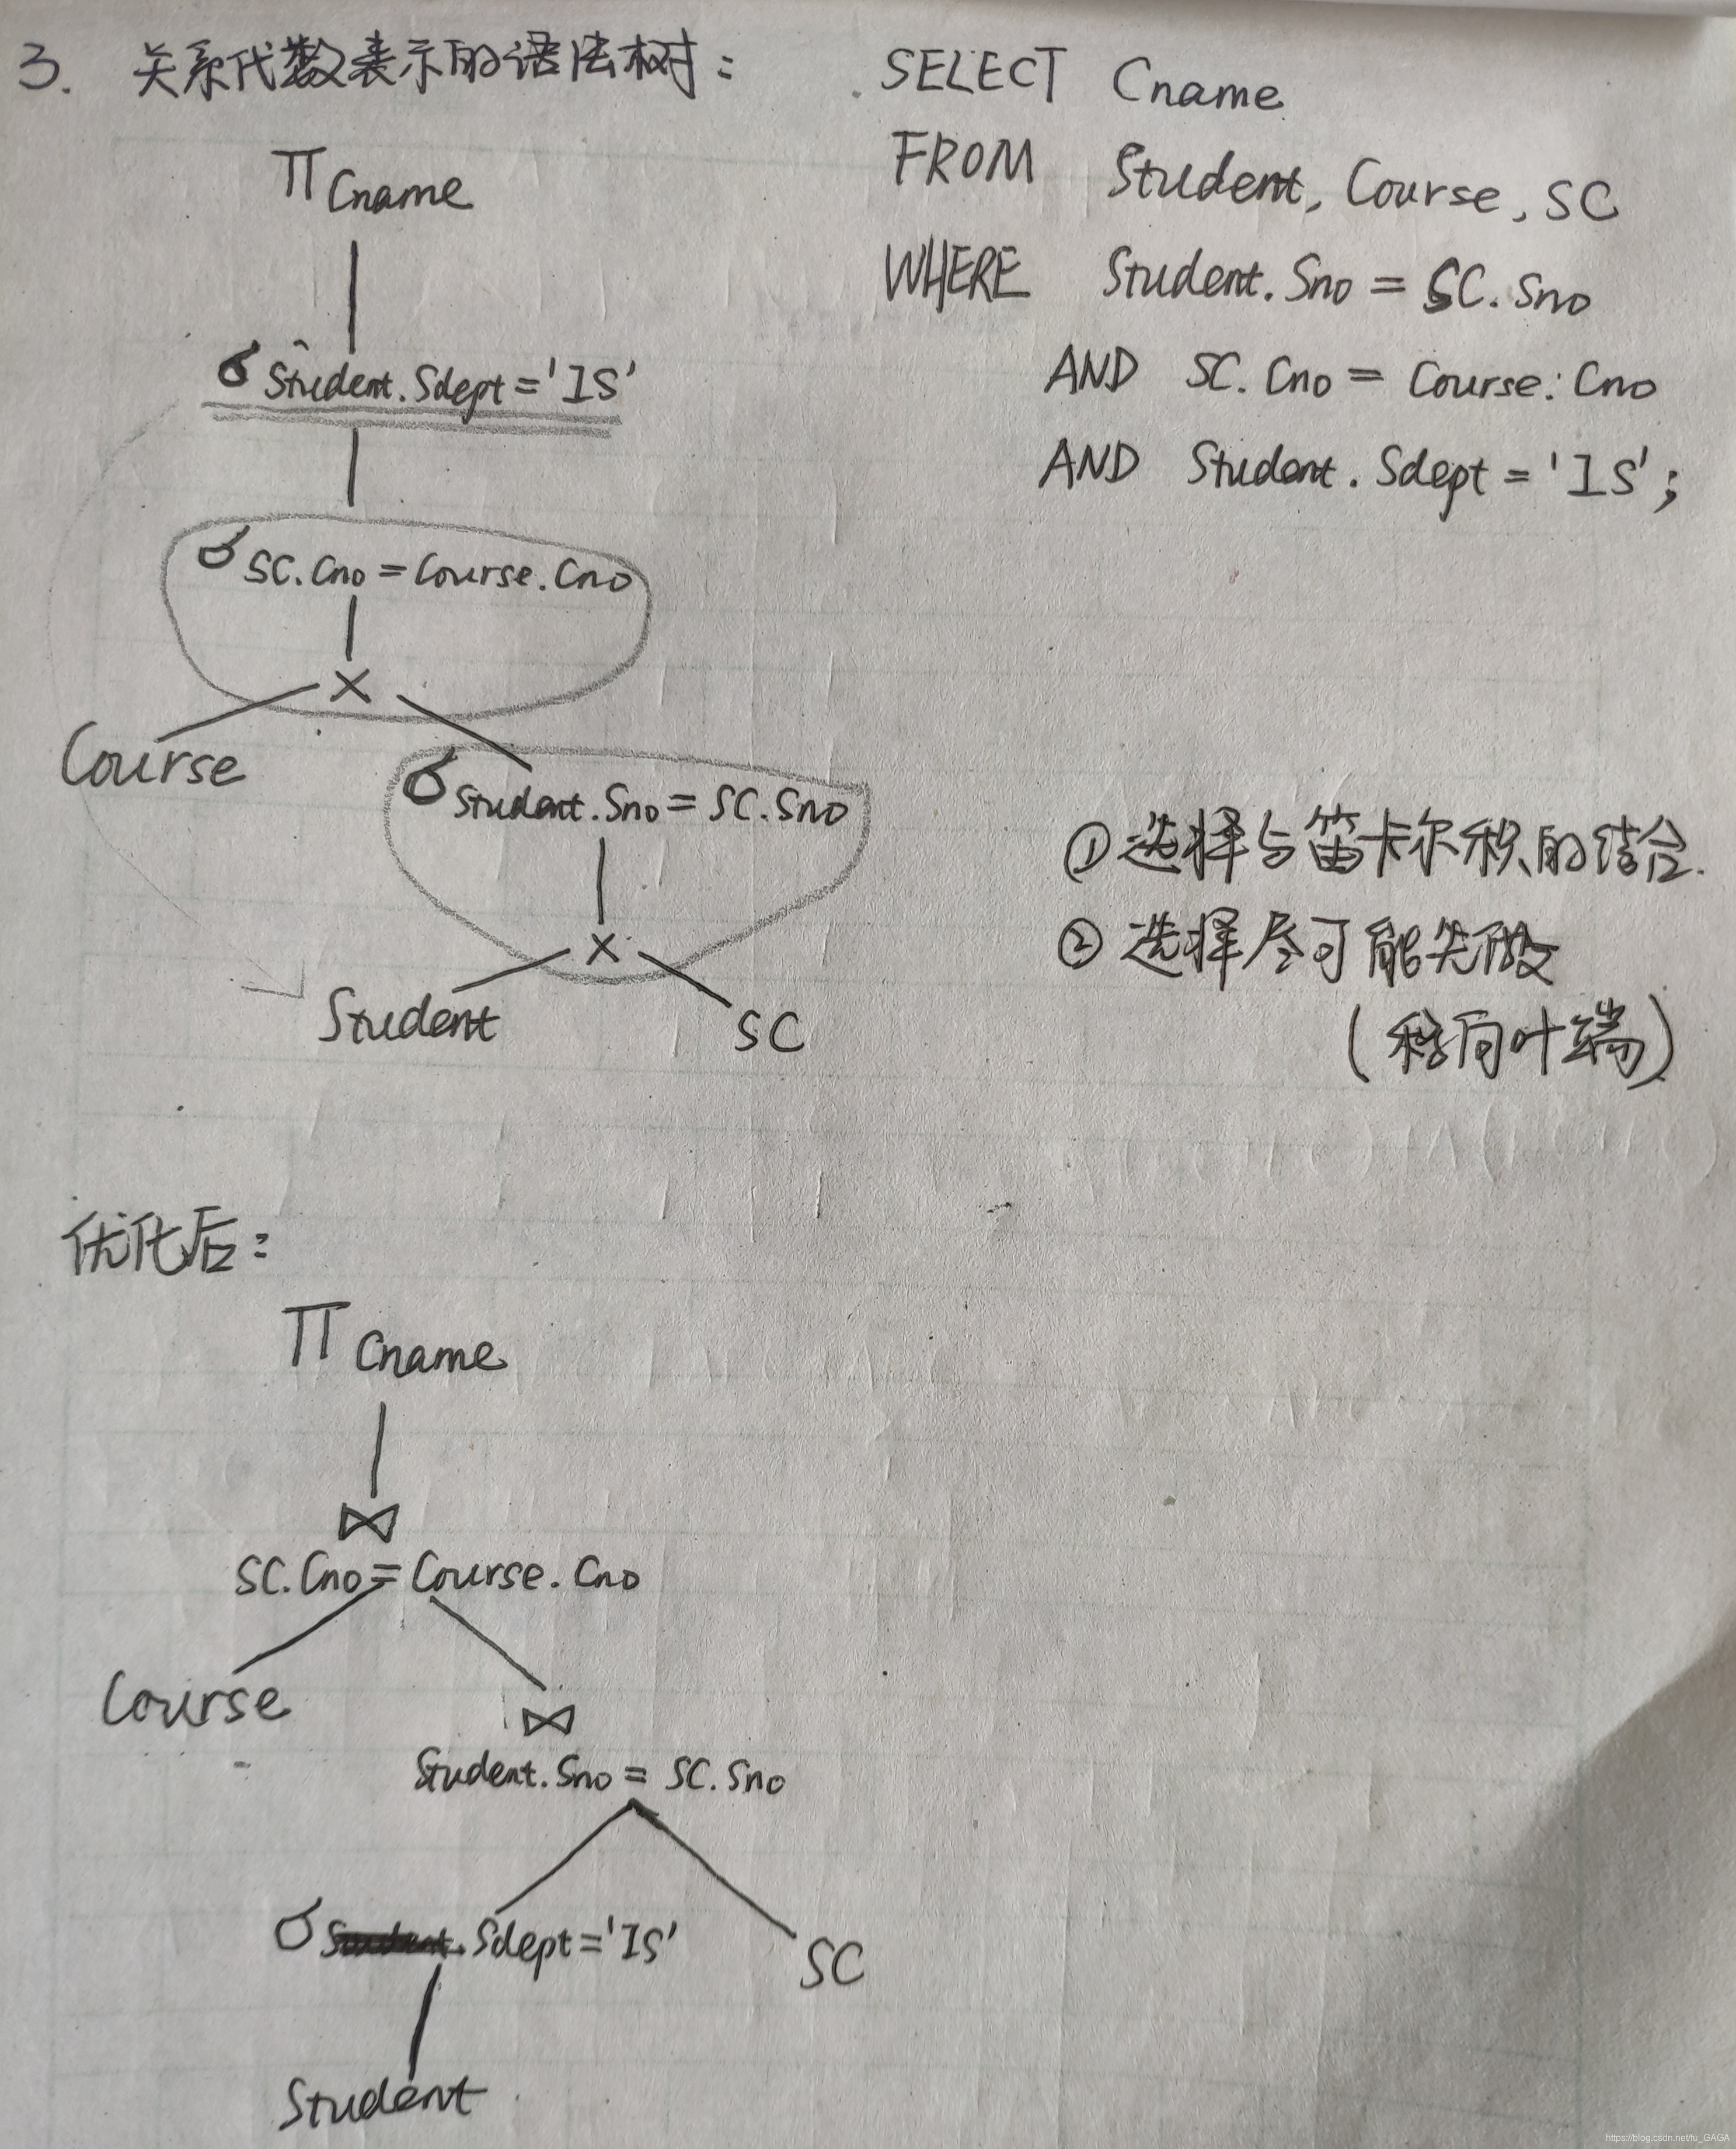 3. 关系代数表示的语法树:
SELECT Cname
FROM Student, Course, SC
WHERE Student.Sno = SC.Sno
AND SC.Cno = Course.Cno
AND Student.Sdept = 'IS';
Π Cname
σ Student.Sdept = 'IS'
σ SC.Cno = Course.Cno
×
Course
σ Student.Sno = SC.Sno
×
Student
SC
①选择与笛卡尔积的结合.
②选择尽可能先做
(移向叶端)
优化后:
Π Cname
⋈
SC.Cno = Course.Cno
Course
⋈
Student.Sno = SC.Sno
σ Sdept = 'IS'
SC
Student
https://blog.csdn.net/fu_GAGA